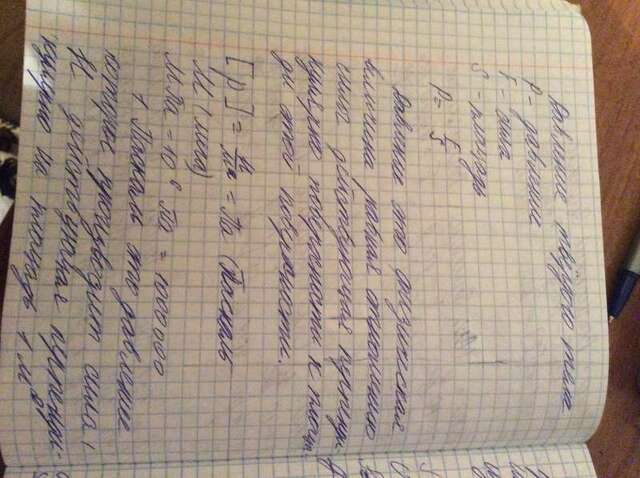 Давление твёрдого тела
P - давление
F - сила
S - площадь
P = F/S
Давление это физическая
величина равная отношению
силы действующая перпенди-
кулярно поверхности к площ.
ди этой поверхности.
[p] = Н/м² = Па (Паскаль)
М (мега)
МПа = 10⁶ Па = 1000000
1 Паскаль это давление
которое производит сила 1
Н действующая перпенди-
кулярно на площадь 1 м²